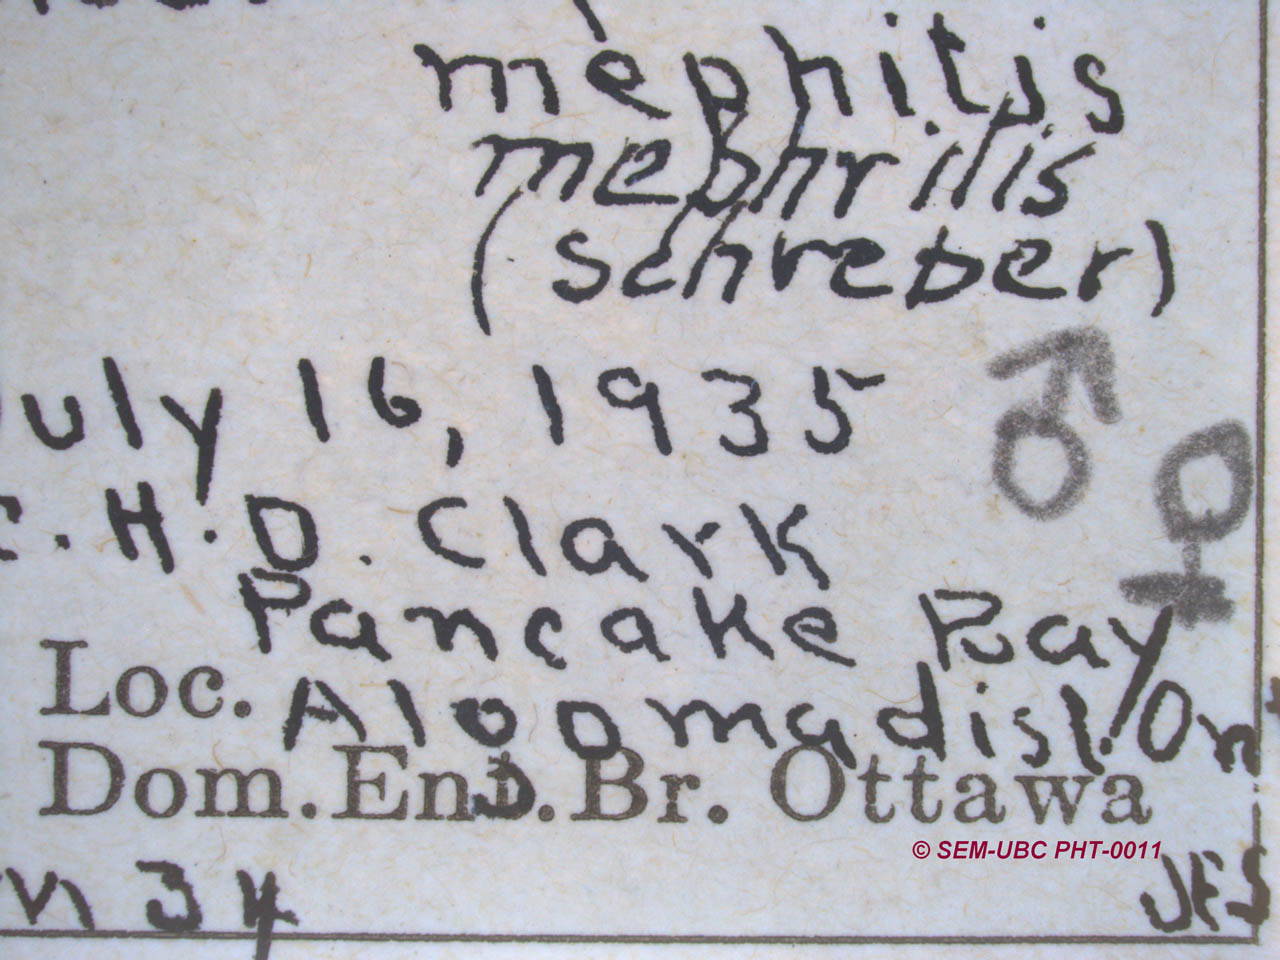 mephitis
mephitis
(Schreber)
July 16, 1935
♂
♀
C. H. D. Clark
Pancake Bay
Loc. Algoma dist. Ont
Dom. Ent. Br. Ottawa
© SEM-UBC PHT-0011
34
JFS